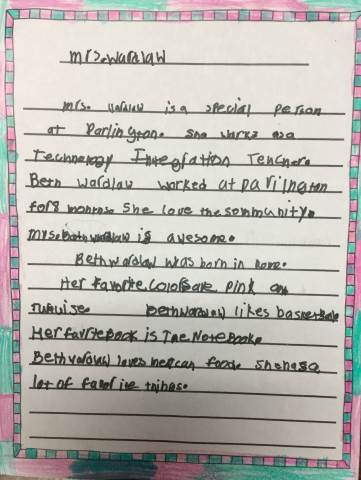 mrs. wardlaw
mrs. wardlaw is a special person
at Parlington. She works as a
Technology Integration Teacher.
Beth wardlaw worked at parington
for 8 monthse She love the sommunity.
mrs. Beth wardlaw is avesome.
Beth wardlaw was born in Rome.
Her favorite colorsare pink an
Beth wardlaw likes basketbale
Her favriteBook is The NoteBook.
Beth wardlaw loves mexcan food. She has a
lot of